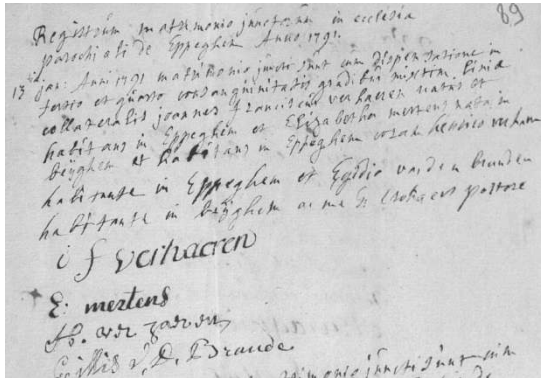 89
Registrum matrimonio junctorum in ecclesia
parochiali de Eppeghem Anno 1791.
13 jan: Anni 1791 matrimonio juncti sunt cum dispensatione in
tertio et quarto consanguinitatis gradibus mixtim linia
collateralis joannes franciscus verhaeren natus et
habitans in Eppeghem et Elizabetha mertens nata in
beijghem et habitans in Eppeghem coram henrico verhaeren
habitante in Eppeghem et Egidio van den branden
habitante in beijghem ac me pastore
i f verhaeren
E: mertens
H. ver haeren
Gillis v. D. Brande
juncti sunt cum